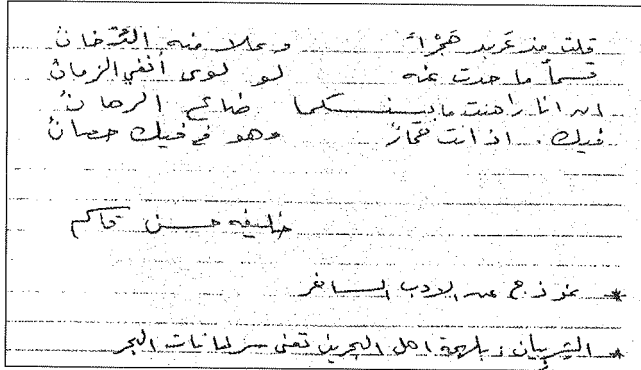 قلت مذ عربد هَجْراً وعلا منه الدُّخانُ
قسماً ما حدت عنه لو لوى أنفي الزمانُ
إن أنا راهنت ما بينكما ضاع الرهانُ
فيك. اذ انت حمارٌ وهو في فيك حصانُ
خليفه حسن قاسم
* نموذج من الادب الساخر
* الشريبان: بلهجة اهل البحرين تعني سرطانات البحر